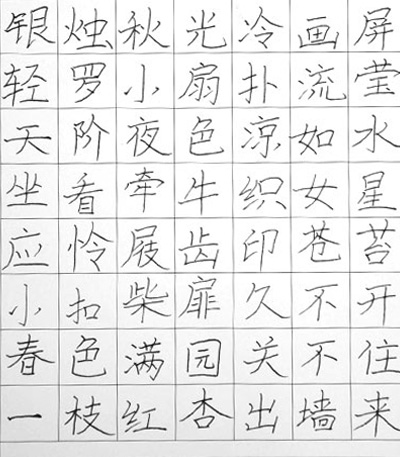 银烛秋光冷画屏
轻罗小扇扑流莹
天阶夜色凉如水
坐看牵牛织女星
应怜屐齿印苍苔
小扣柴扉久不开
春色满园关不住
一枝红杏出墙来